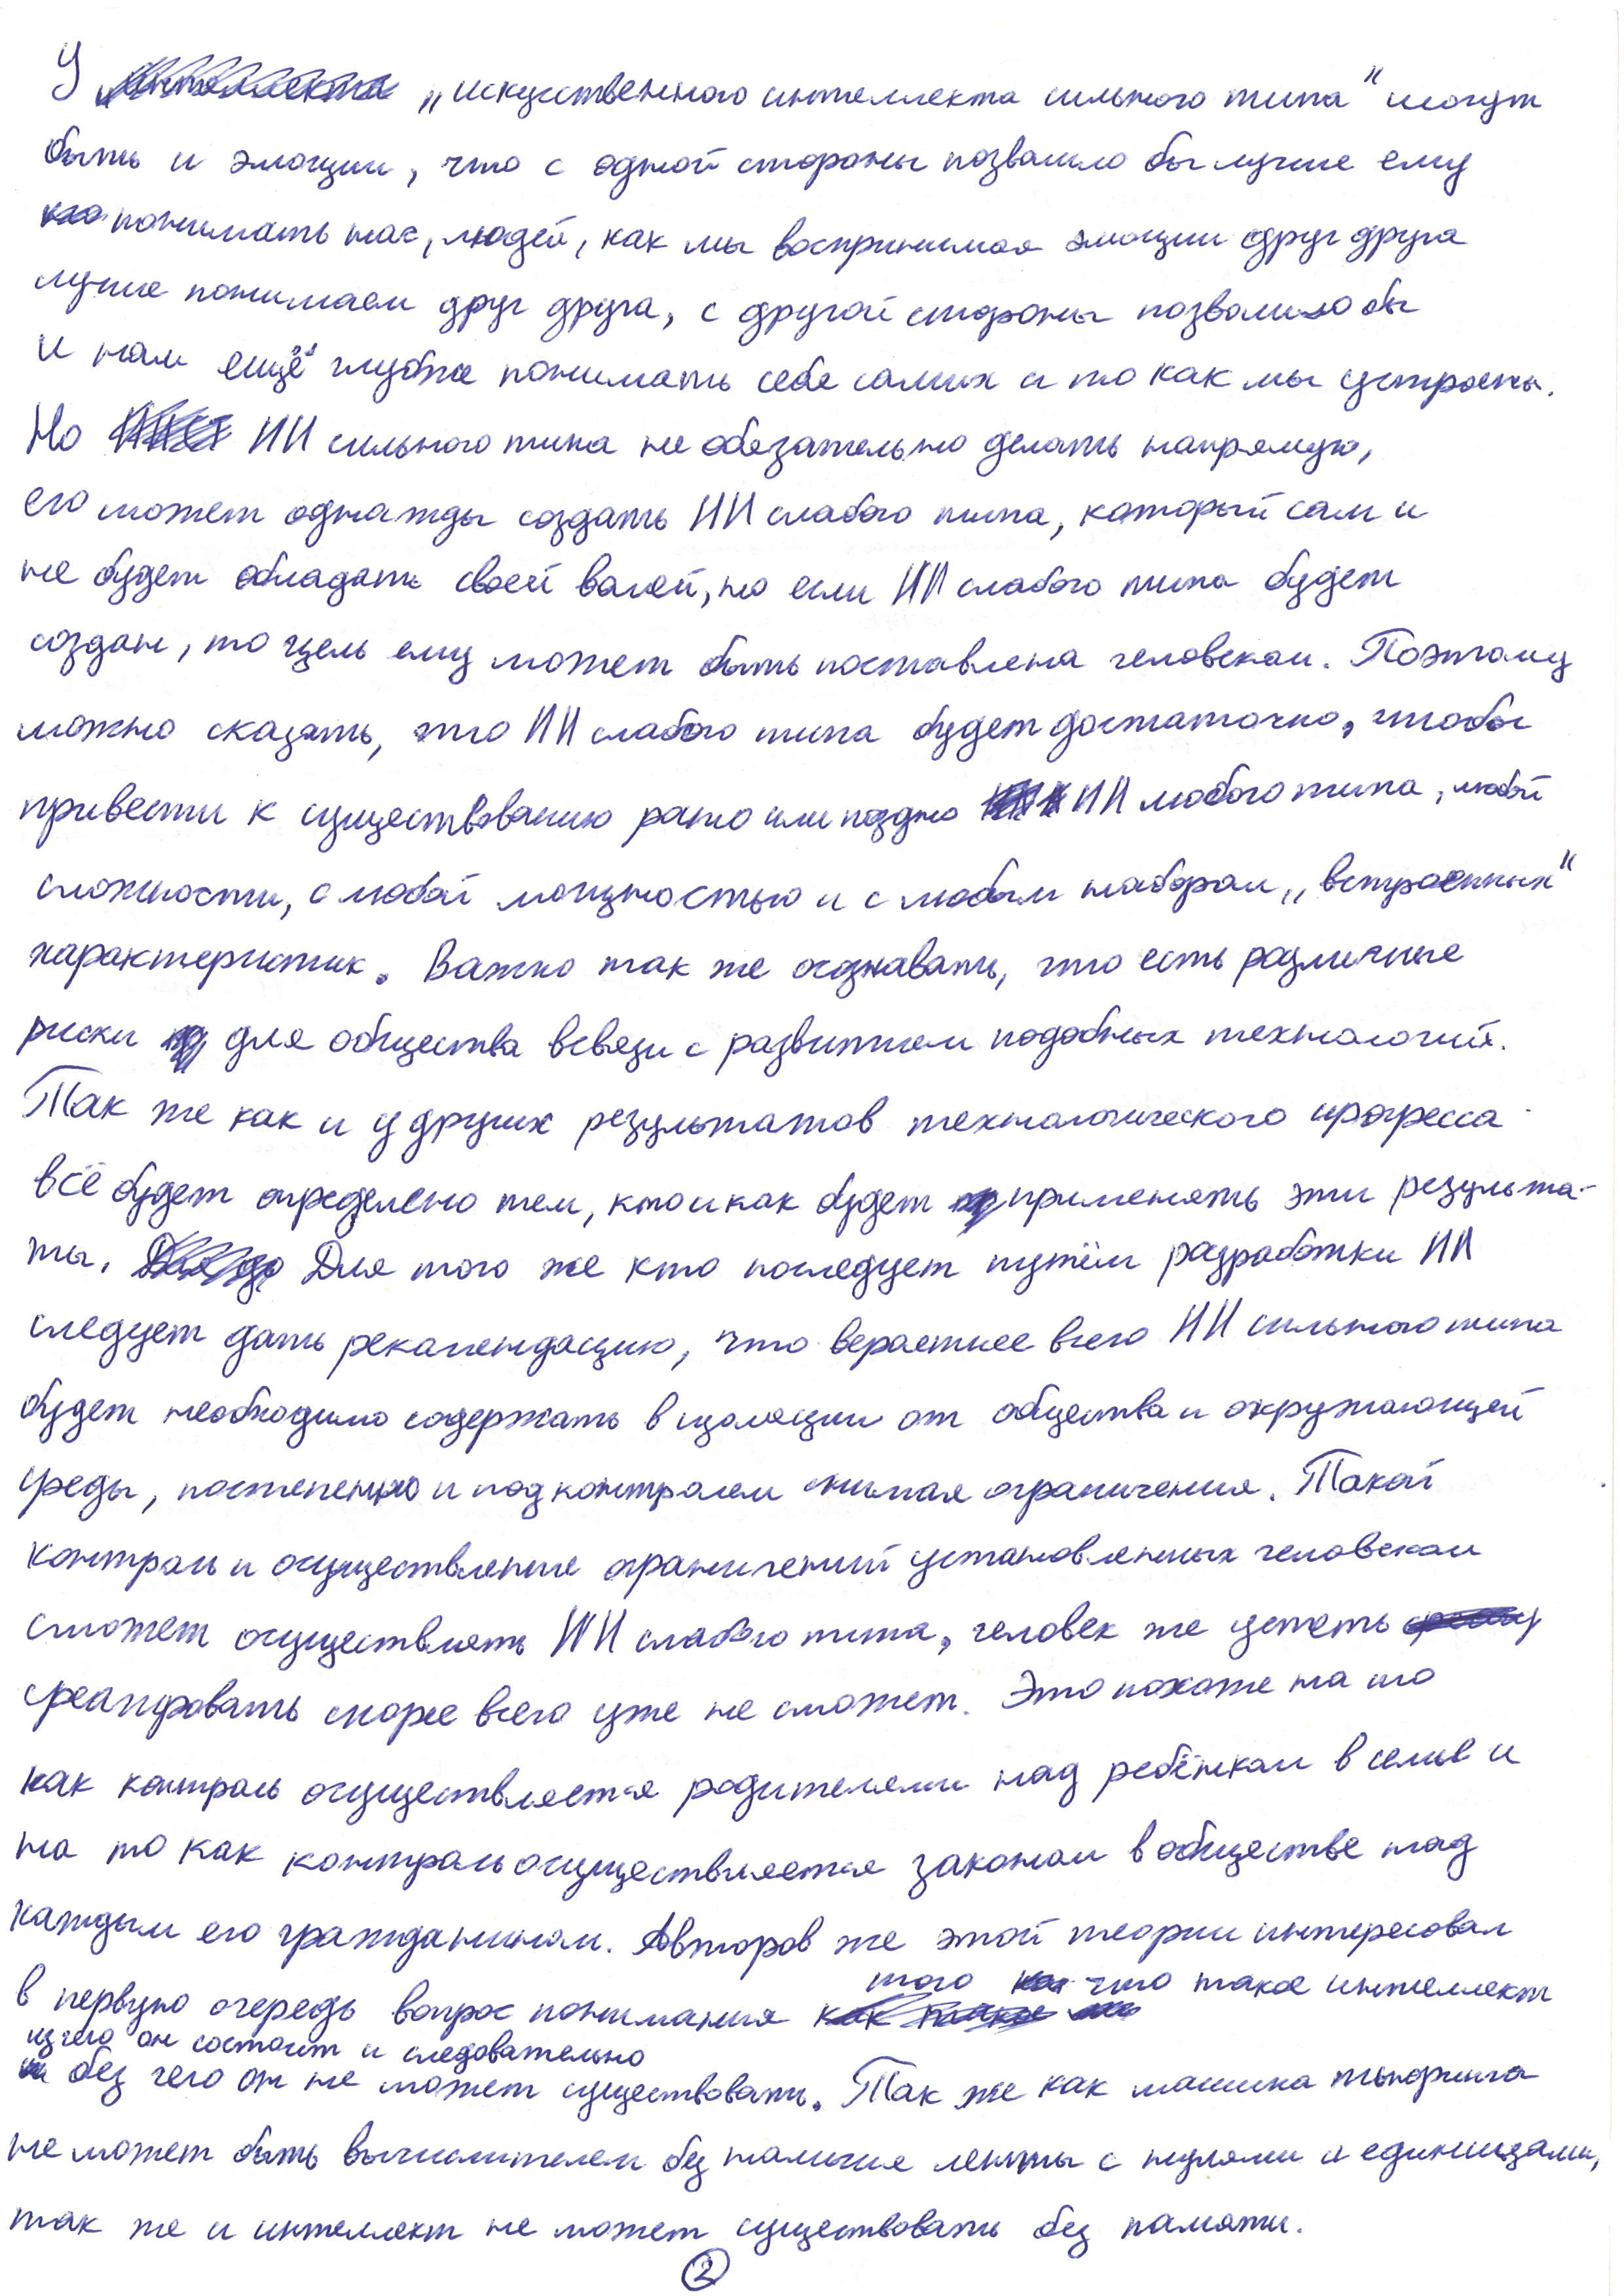 У „искусственного интеллекта сильного типа“ могут
быть и эмоции, что с одной стороны позволило бы лучше ему
понимать нас, людей, как мы воспринимая эмоции друг друга
лучше понимаем друг друга, с другой стороны позволило бы
и нам ещё глубже понимать себя самих и то как мы устроены.
Но ИИ сильного типа не обязательно делать напрямую,
его может однажды создать ИИ слабого типа, который сам и
не будет обладать своей волей, но если ИИ слабого типа будет
создан, то цель ему может быть поставлена человеком. Поэтому
можно сказать, что ИИ слабого типа будет достаточно, чтобы
привести к существованию рано или поздно ИИ любого типа, любой
сложности, с любой мощностью и с любым набором „встроенных“
характеристик. Важно так же осознавать, что есть различные
риски для общества всвязи с развитием подобных технологий.
Так же как и у других результатов технологического прогресса
всё будет определено тем, кто и как будет применять эти результа-
ты. Для того же кто последует путём разработки ИИ
следует дать рекомендацию, что вероятнее всего ИИ сильного типа
будет необходимо содержать в изоляции от общества и окружающей
среды, постепенно и под контролем снимая ограничения. Такой
контроль и осуществление ограничений установленных человеком
сможет осуществлять ИИ слабого типа, человек же успеть
среагировать скорее всего уже не сможет. Это похоже на то
как контроль осуществляется родителями над ребёнком в семье и
на то как контроль осуществляется законом в обществе над
каждым его гражданином. Авторов же этой теории интересовал
в первую очередь вопрос понимания того что такое интеллект
из чего он состоит и следовательно
без чего он не может существовать. Так же как машина тьюринга
не может быть вычислителем без наличия ленты с нулями и единицами,
так же и интеллект не может существовать без памяти.
2